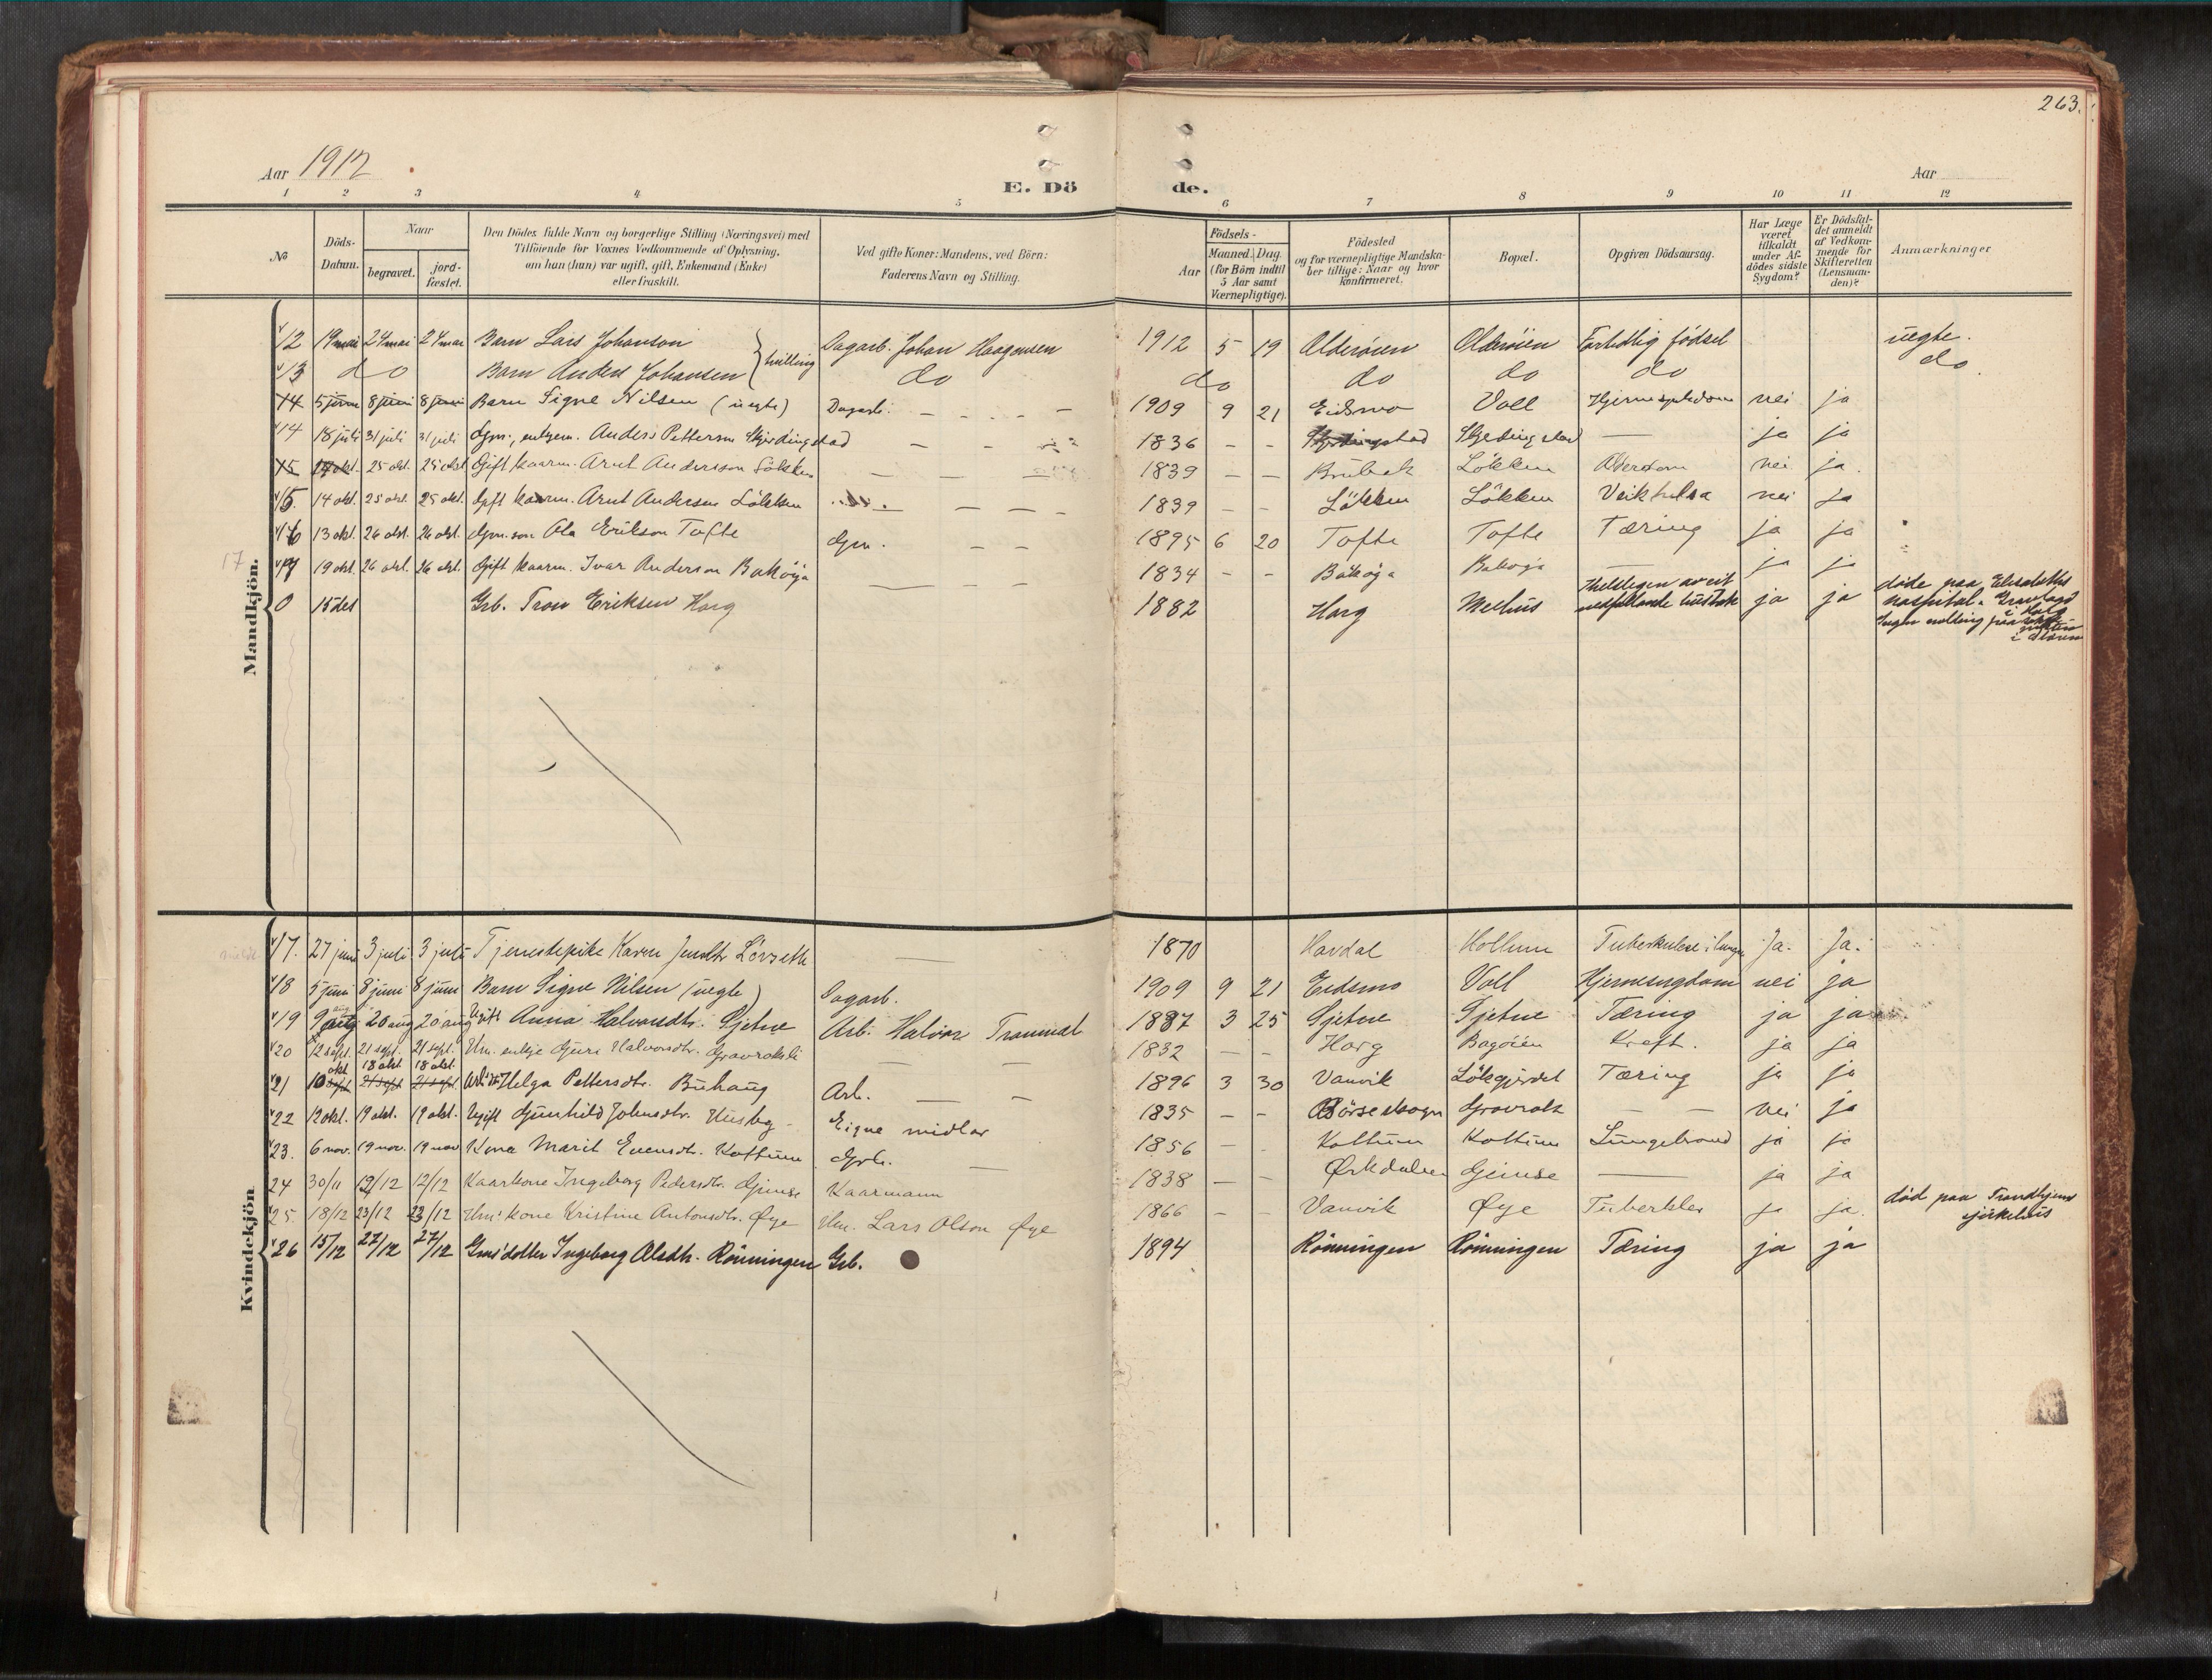 263.
Aar 1912
Aar
E. Dö de.
1 2 3 4 5 6 7 8 9 10 11 12
No
Döds-Datum.
Naar
begravet.
jord-fæstet.
Den Dödes fulde Navn og borgerlige Stilling (Næringsvei) med
Tilföiende for Voxnes Vedkommende af Oplysning,
om han (hun) var ugift, gift, Enkemand (Enke)
eller fraskilt.
Ved gifte Koner: Mandens, ved Börn:
Faderens Navn og Stilling.
Födsels-
Aar
Maaned. Dag.
(for Börn indtil
5 Aar samt
Værnepligtige).
Födested
og for værnepligtige Mandska-
ber tillige: Naar og hvor
konfirmeret.
Bopæl.
Opgiven Dödsaarsag.
Har Læge
været
tilkaldt
under Af-
dödes sidste
Sygdom?
Er Dödsfal-
det anmeldt
af Vedkom-
mende for
Skifteretten
(Lensman-
den)?
Anmærkninger
Mandkjön.
12 19 mai 24 mai 24 mai Barn Lars Johanson } tvilling Dagarb. Johan Haagensen 1912 5 19 Olderöien Olderöien Fortidlig födsel uegte.
13 do Barn Anders Johansen do do do do do do.
14 5 juni 8 juni 8 juni Barn Signe Nilsen (uegte) Dagarb. — 1909 9 21 Eidsmo Voll nei ja
14 18 juli 31 juli 31 juli Gjm., enkem. Anders Petterson Skjerdingstad — 1836 - - Skjerdingstad Skjerdingstad — ja ja
15 okt. 25 okt. 25 okt Gift kaarm. Arnt Andersson Lökken — 1839 — — Brubak Lökken Alderdom nei ja.
15. 14 okt. 25 okt. 25 okt. Gift kaarm. Arnt Anderson Lökken — 1839 - - Lökken Lökken nei ja
16 13 okt. 26 okt. 26 okt. Gjm. son Ola Erikson Tofte Gjm. — 1895 6 20 Tofte Tofte Tæring ja ja
17
17 19 okt. 26 okt. 26 okt. Gift kaarm. Ivar Anderson Baköya — 1834 - - Baköya Baköya — ja ja
0 15 des Grb. Tron Eriksen Horg 1882 Horg Melhus ihelslegen av eit
nedfallande hustak ja ja döde paa Elisabeths
hospital.
Kvindekjön
17. 27 juni 3 juli 3 juli Tjenestepike Karen Jensdtr Lövseth — 1870 Havdal Hollum Tuberkulose i lunger Ja. Ja.
18 5 juni 8 juni 8 juni Barn Signe Nilsen (uegte) Dagarb. 1909 9 21 Eidsmo Voll Hjernesygdom nei ja
19 9 aug 20 aug 20 aug Ugift Anna Halvorsdtr. Gjetne Arb. Halvor 1887 3 25 Gjetne Gjetne Tæring ja ja
20 12 sept. 21 sept. 21 sept. Hm. enkje Guri Halvorsdtr. Gravraksli — 1832 — - Horg Bagöien Kreft. ja ja
okt 18 okt 18 okt.
21 10 sept 21 sept 21 sept. Helga Pettersdtr. Buhaug Arb. — 1896 3 30 Vanvik Lökgjerdet Tæring ja ja
22 12 okt. 19 okt. 19 okt. Ugift Gunhild Johnsdtr. Husby - Eigne midlar 1835 - - Börseskogn Gravrak — — nei ja
23. 6 nov. 19 nov. 19 nov Kona Marit Evensdtr. Kattum Grb. — 1856 - Kattum Kattum Lungebrand ja ja
24 30/11 12/12 12/12 Kaarkone Ingeborg Pedersdtr. Gimse Kaarmann 1838 - - Ørkdalen Gimse — ja ja
25. 18/12 23/12 23/12 Hm. kone Kristine Antonsdtr. Øye Hm. Lars Olson Øye 1866 - - Vanvik Øye Tuberkler ja ja. död paa Trondhjems
sjukehus
26 15/12 27/12 27/12 Gmsdotter Ingeborg Olsdtr. Rönningen Grb. 1894 Rönningen Rönningen Tæring ja ja